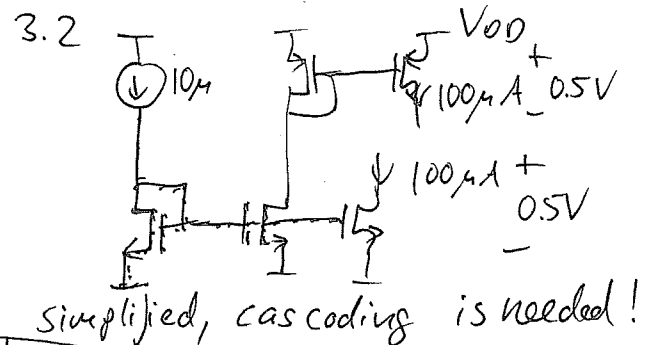 3.2
VDD
10μ
+
100μA 0.5V
-
100μA +
0.5V
-
simplified, cascoding is needed!